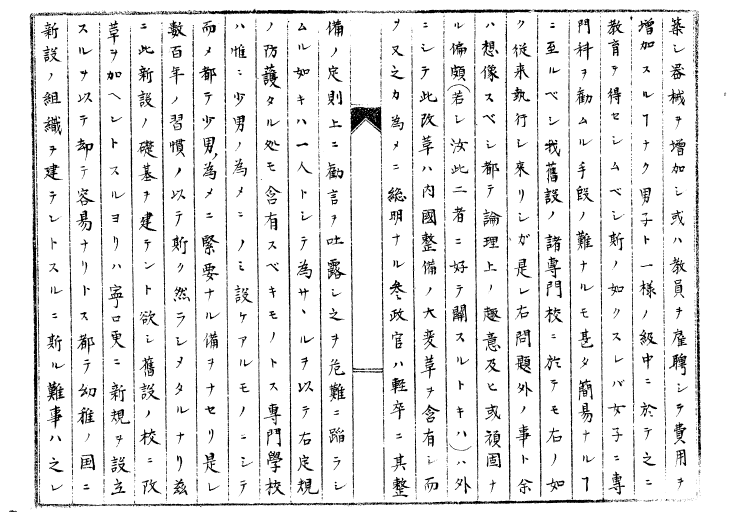 築シ器械ヲ増加シ或ハ教員ヲ雇聘シテ費用ヲ
増加スルヿナク男子ト一様ノ級中ニ於テ之ニ
教育ヲ得セシムベシ斯ノ如クスレバ女子ニ専
門科ヲ勧ムル手段ノ難ナルモ甚タ簡易ナルヿ
ニ至ルベシ我舊設ノ諸専門校ニ於テモ右ノ如
ク従来執行シ来リシガ是レ右問題外ノ事ト余
ハ想像スベシ都テ論理上ノ趣意及ヒ或頑固ナ
ル偏頗(若シ汝此二者ニ好テ關スルトキハ)ハ外
ニシテ此改革ハ内國整備ノ大変革ヲ含有シ而
ヲ又之カ為メニ総明ナル参政官ハ軽卒ニ其整
備ノ定則上ニ勧言ヲ吐露シ之ヲ危難ニ蹈ラシ
ムル如キハ一人トシテ為サヽルヲ以テ右定規
ノ防護タル処モ含有スベキモノトス専門學校
ハ惟ニ少男ノ為メニノミ設ケアルモノニシテ
而メ都テ少男ノ為メニ緊要ナル備ヲナセリ是レ
数百年ノ習慣ノ以テ斯ク然ラシメタルナリ茲
ニ此新設ノ礎基ヲ建テント欲シ舊設ノ校ニ改
革ヲ加ヘントスルヨリハ寧ロ更ニ新規ヲ設立
スルヲ以テ却テ容易ナリトス都テ幼稚ノ国ニ
新設ノ組織ヲ建テントスルニ斯ル難事ハ之レ